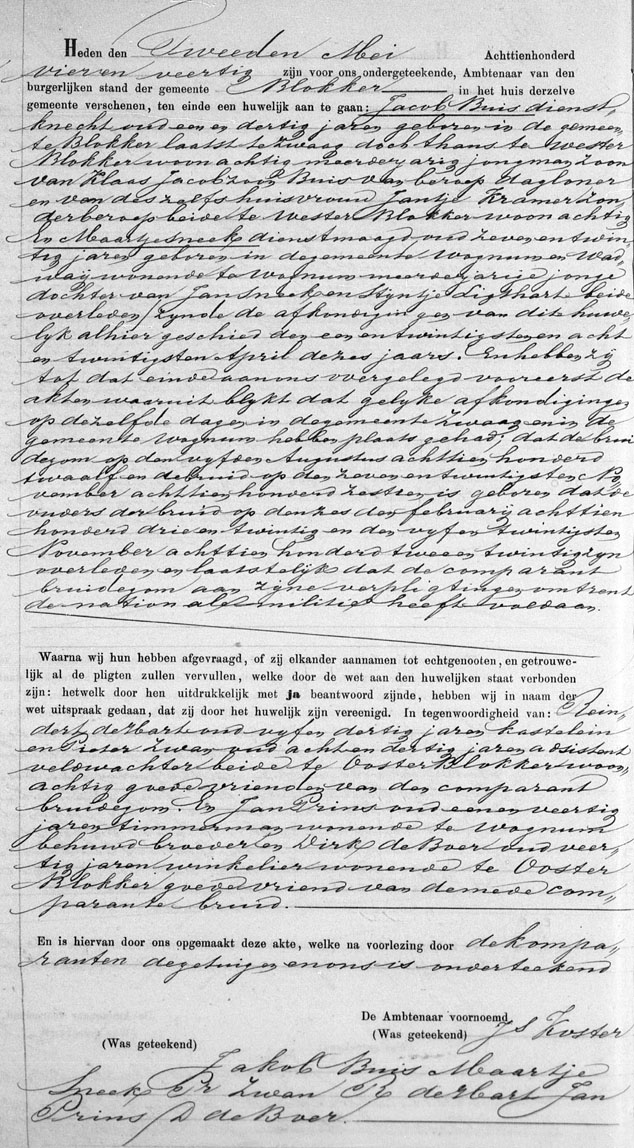 Heden den Tweeden Mei Achttienhonderd
vier en veertig zijn voor ons ondergeteekende, Ambtenaar van den
burgerlijken stand der gemeente Blokker in het huis derzelve
gemeente verschenen, ten einde een huwelijk aan te gaan: Jacob Buis dienst-
knecht oud een en dertig jaren geboren in de gemeen
te Blokker laatst te Zwaag doch thans te Wester
Blokker woonachtig meerderjarig jongman zoon
van Klaas Jacobzoon Buis van beroep dagloner
en van deszelfs huisvrouw Jantje Kramer zon
der beroep beide te Wester Blokker woonachtig
En Maartje Sneek dienstmaagd oud zeven en twin
tig jaren geboren in de gemeente Wognum en Wad
way wonende te Wognum meerderjarige jonge
dochter van Jan Sneek en Stijntje digthart beide
overleden zynde de afkondigingen van dit huwe
lyk alhier geschied den een en twintigsten en acht
en twintigsten April dezes jaars. En hebben zy
tot dat einde aan ons overgelegd vooreerst de
akten waaruit blykt dat gelyke afkondigingen
op dezelfde dagen in de gemeente Zwaag en in de
gemeente Wognum hebben plaats gehad, dat de brui
degom op den vyfden Augustus achttien honderd
twaalf en de bruid op den zeven en twintigsten No
vember achttien honderd zestien is geboren dat de
ouders der bruid op den zesden february achttien
honderd drie en twintig en den vyf en twintigsten
November achttien honderd twee en twintig zyn
overleden en laatstelijk dat de comparant
bruidegom aan zyne verpligtingen omtrent
de nationale militie heeft voldaan.
Waarna wij hun hebben afgevraagd, of zij elkander aannamen tot echtgenooten, en getrouwe-
lijk al de pligten zullen vervullen, welke door de wet aan den huwelijken staat verbonden
zijn: hetwelk door hen uitdrukkelijk met ja beantwoord zijnde, hebben wij in naam der
wet uitspraak gedaan, dat zij door het huwelijk zijn vereenigd. In tegenwoordigheid van: Rein
dert derbart oud vyf en dertig jaren kastelein
en Pieter Zwan oud acht en dertig jaren adsistent
veldwachter beide te Ooster Blokker woon
achtig goede vrienden van den comparant
bruidegom. En Jan Prins oud een en veertig
jaren timmerman wonende te Wognum
behuwd broeder en Dirk de Boer oud veer-
tig jaren winkelier wonende te Ooster
Blokker goede vriend van de mede com-
parante bruid.
En is hiervan door ons opgemaakt deze akte, welke na voorlezing door de kompa-
ranten de getuigen en ons is onderteekend
De Ambtenaar voornoemd
(Was geteekend) J S Koster
(Was geteekend)
Jakob Buis Maartje
Sneek Pr Zwan R derbart Jan
Prins D de Boer.